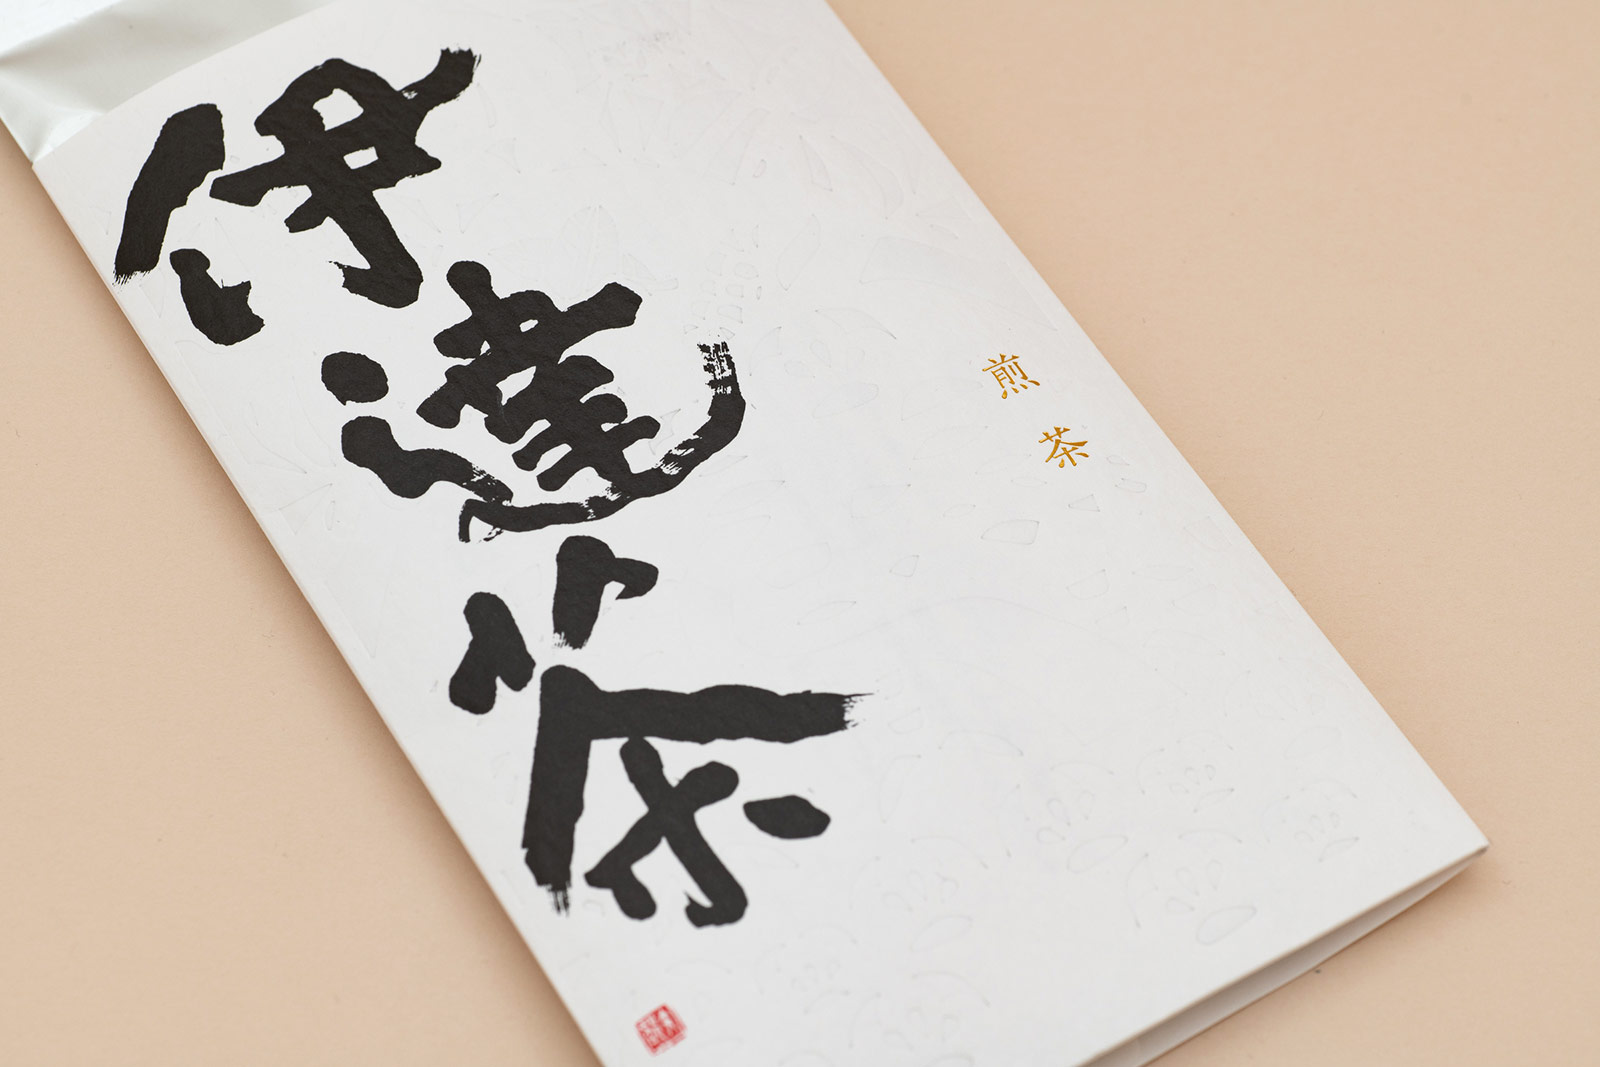 伊達茶
煎茶